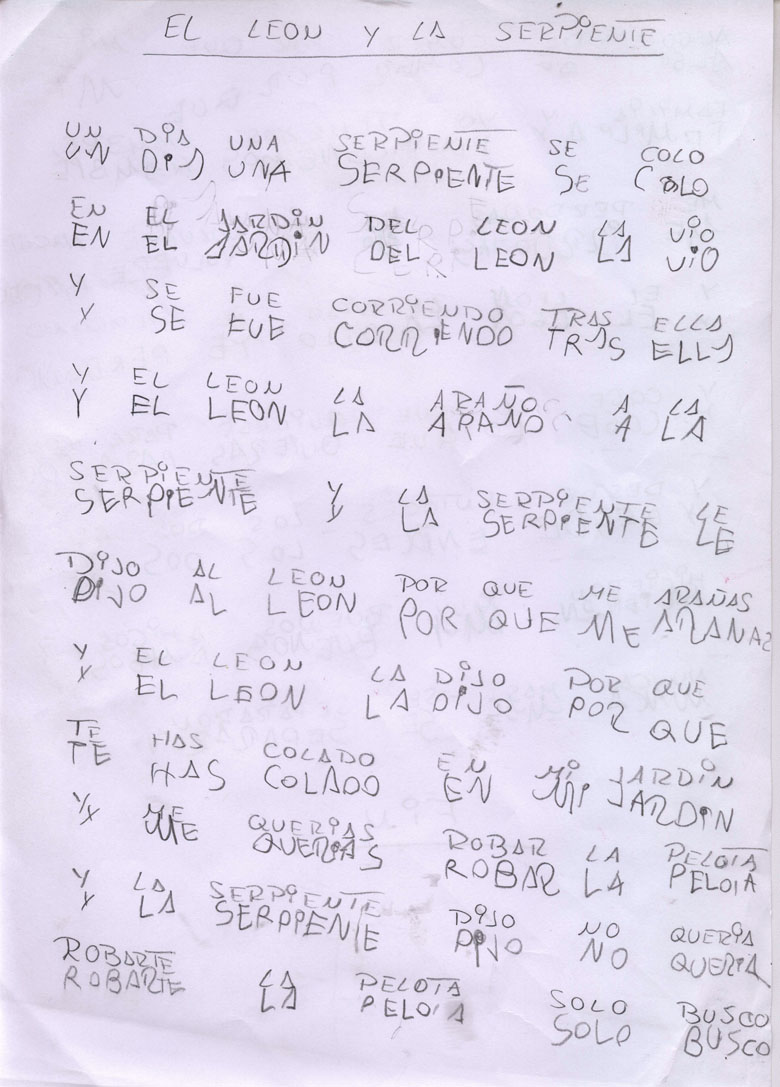 EL LEON Y LA SERPIENTE
UN DIA UNA SERPIENTE SE COLO
UN DIA UNA SERPIENTE SE COLO
EN EL JARDIN DEL LEON LA VIO
EN EL JARDIN DEL LEON LA VIO
Y SE FUE CORRIENDO TRAS ELLA
Y SE FUE CORRIENDO TRAS ELLA
Y EL LEON LA ARAÑO A LA
Y EL LEON LA ARAÑO A LA
SERPIENTE Y LA SERPIENTE LE
SERPIENTE Y LA SERPIENTE LE
DIJO AL LEON POR QUE ME ARAÑAS
DIJO AL LEON POR QUE ME ARANAZ
Y EL LEON LA DIJO POR QUE
Y EL LEON LA DIJO POR QUE
TE HAS COLADO EN MI JARDIN
TE HAS COLADO EN MI JARDIN
Y ME QUERIAS ROBAR LA PELOTA
Y ME QUERIAS ROBAR LA PELOIA
Y LA SERPIENTE DIJO NO QUERIA
Y LA SERPIENTE DIJO NO QUERIA
ROBARTE LA PELOTA SOLO BUSCO
ROBARTE LA PELOIA SOLO BUSCO